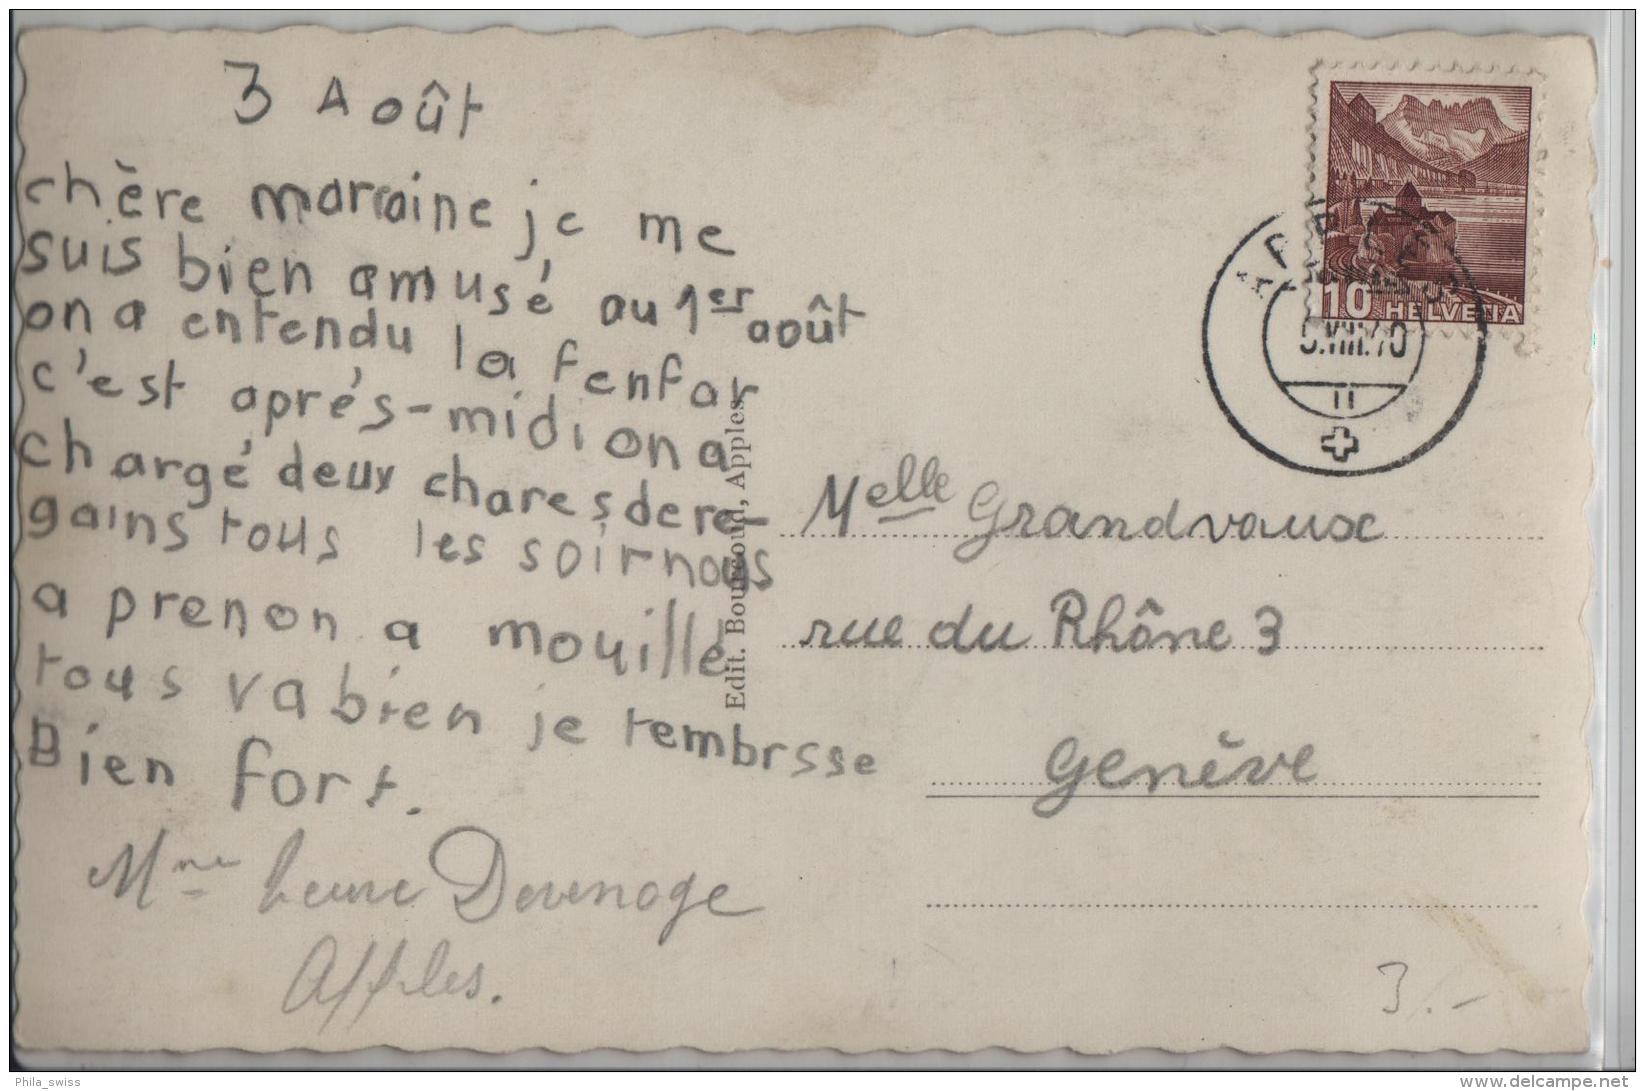 3 Août
chère marraine je me
suis bien amusé au 1er août
on a entendu la fenfar
c'est aprés-midi on a
chargé deux chares de re-
gains tous les soir nous
a prenon a mouillé
tous va bien je tembrsse
Bien fort.
Mme Devenoge
Apples.
Edit. Bourgoud, Apples
10 HELVETIA
5.VIII.40
Melle Grandvaux
rue du Rhône 3
Genève
3.-
Phila_swiss
www.delcampe.net